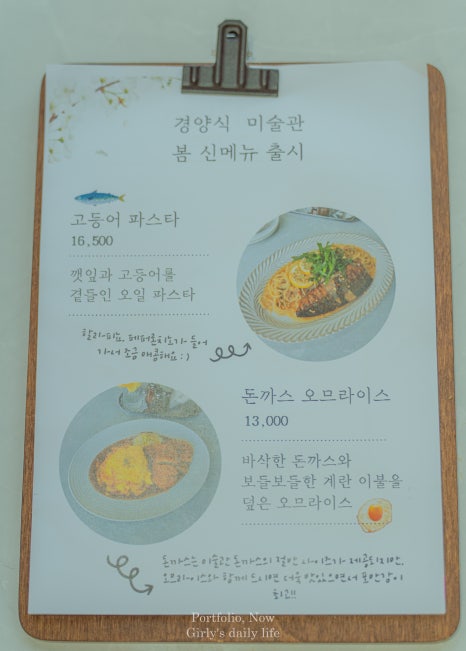 경양식 미술관
봄 신메뉴 출시
고등어 파스타
16,500
깻잎과 고등어를
곁들인 오일 파스타
할라피뇨, 페퍼론치노가 들어
가서 조금 매콤해요 : )
돈까스 오므라이스
13,000
바삭한 돈까스와
보들보들한 계란 이불을
덮은 오므라이스
돈까스는 미술관 돈까스의 절반 사이즈가 제공되지만,
오므라이스와 함께 드시면 더욱 맛있으면서 포만감이
최고!!
Portfolio, Now
Girly's daily life